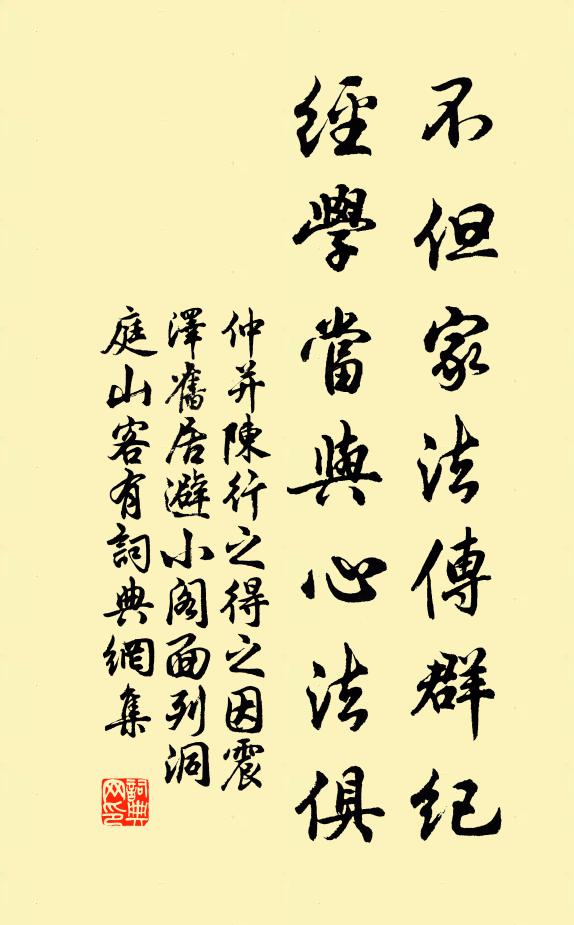 不但家法傳群紀
經學當與心法俱
仲并陳行之得之因震
澤舊居避小閣面列洞
庭山客有詞典網集
詞典網印